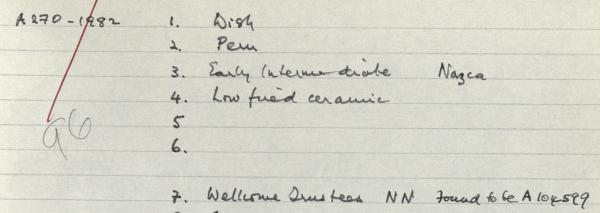 A270-1982 1. Dish
2. Peru
3. Early Intermediate Nazca
4. Low fired ceramic
96 5
6.
7. Wellcome Trustees NN Found to be A104599